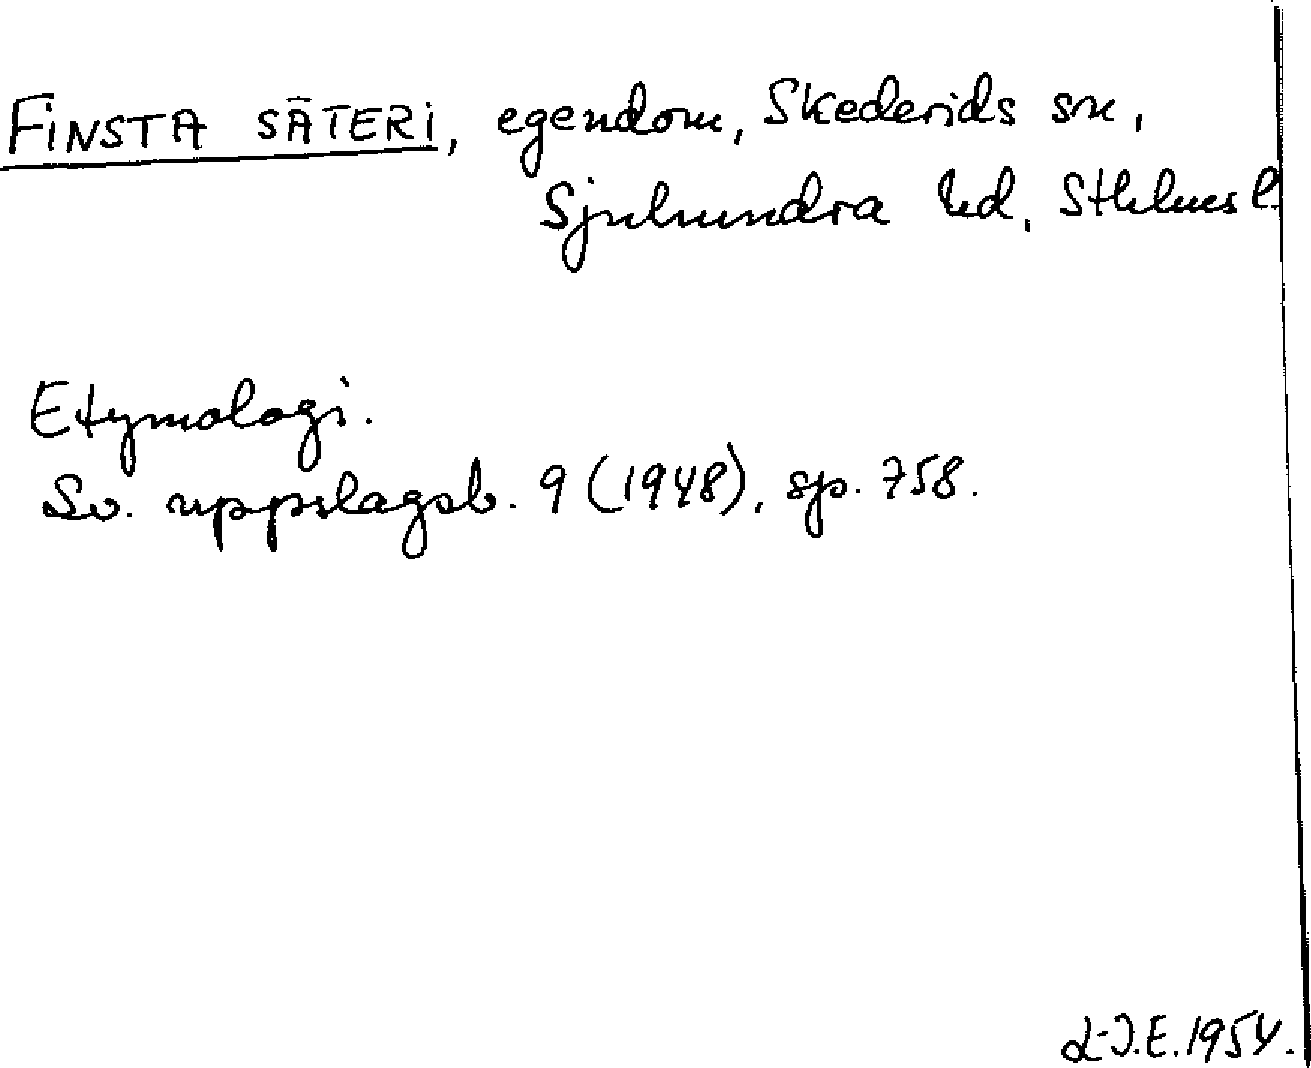 FINSTA SÄTERI, egendom, Skederids sn,
Sjuhundra hd, Sthlms l.
Etymologi.
Sv. uppslagsb. 9 (1948), sp. 758.
L-J.E. 1954.